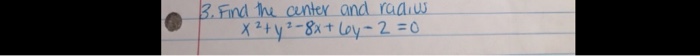 3. Find the center and radius
x²+y²-8x+6y-2=0